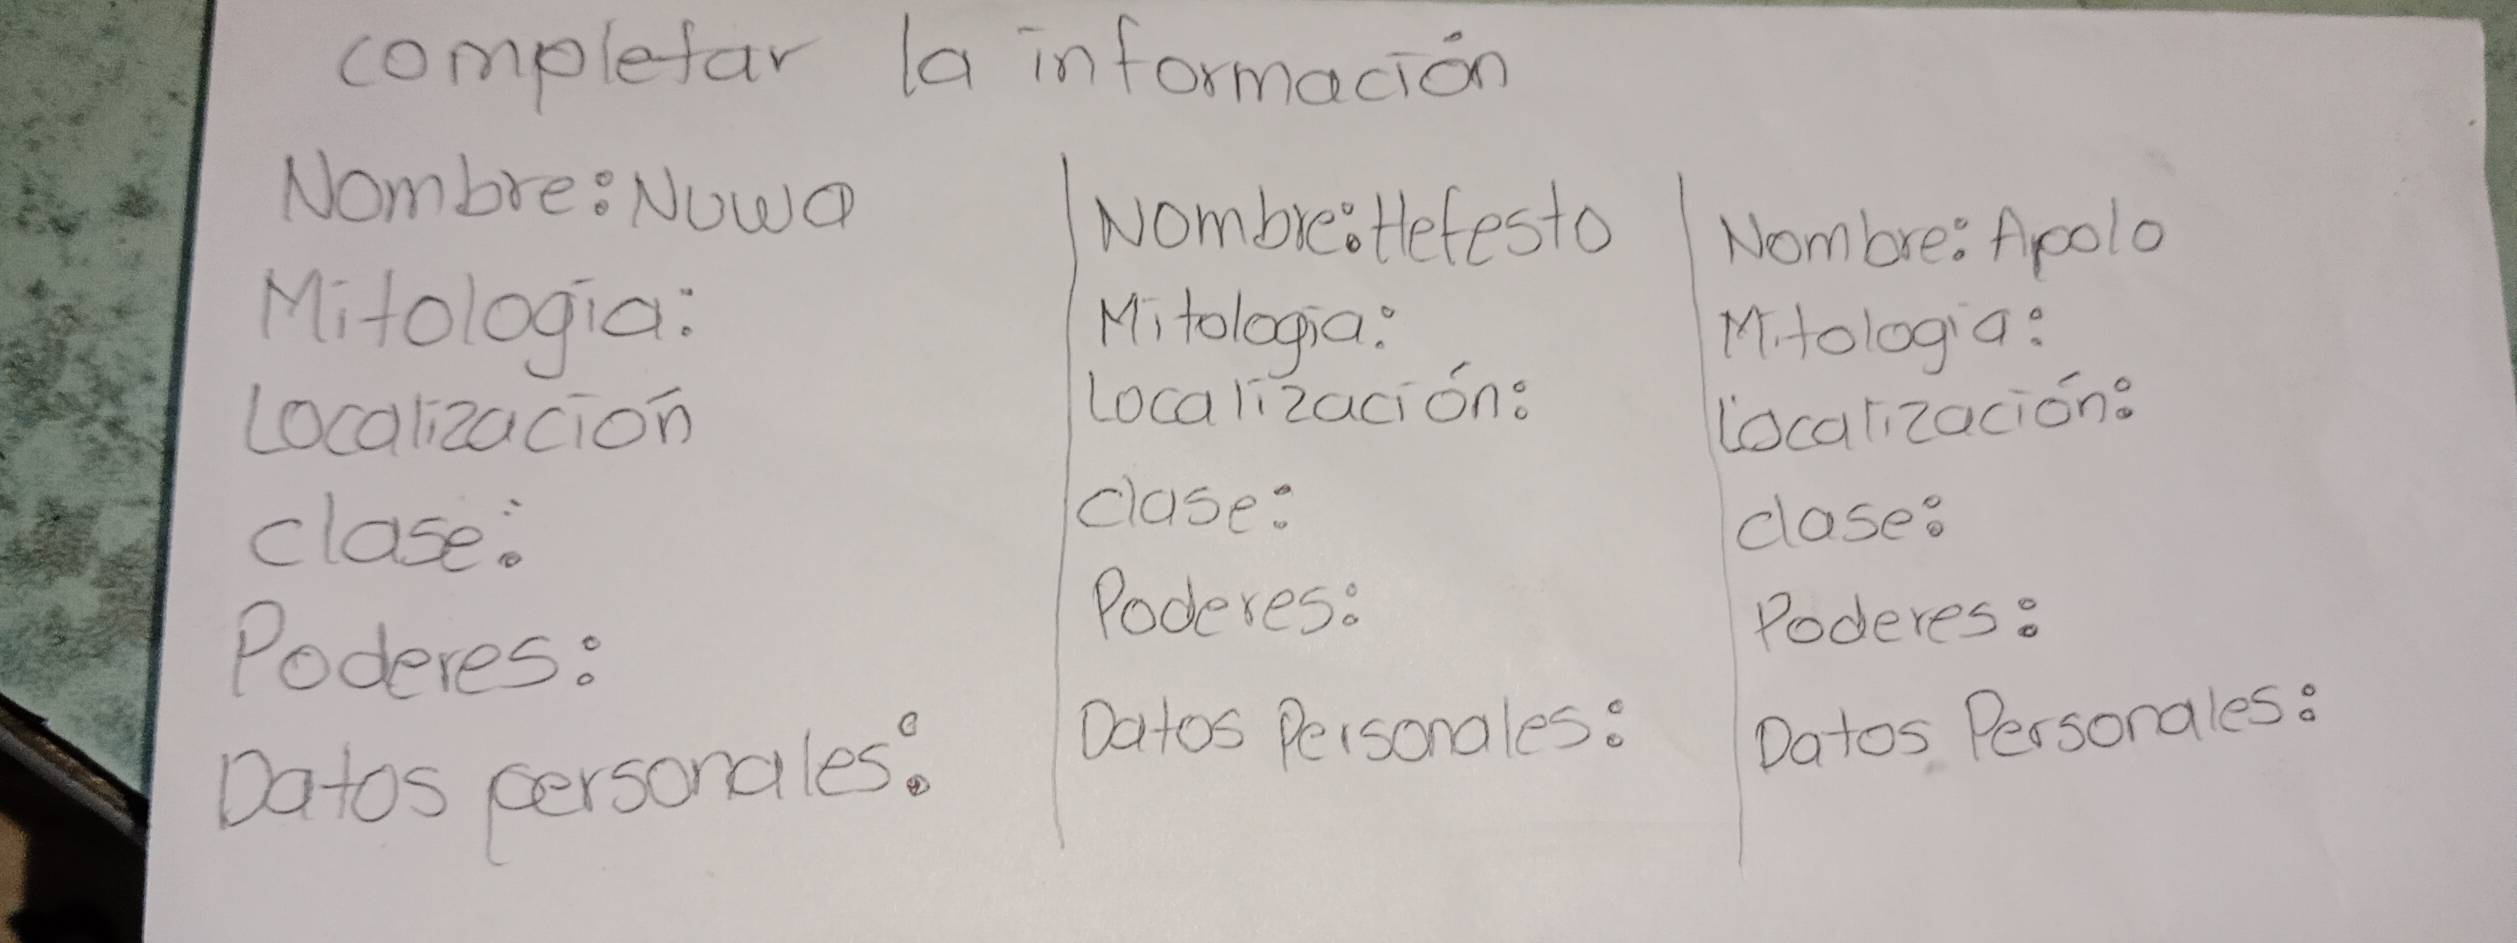 completar la información
Nombre: Nuwa
Mitologia:
Localizacion
clase:
Poderes:
Datos personales:
Nombre: Hefesto
Mitologia:
Localización:
clase:
Poderes:
Datos Personales:
Nombre: Apolo
Mitologia:
Localización:
clase:
Poderes:
Datos Personales: